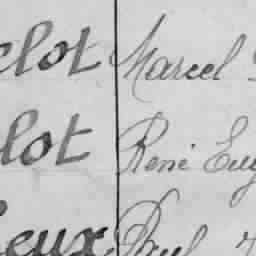 clot Marcel
lot René Eug
eux Paul